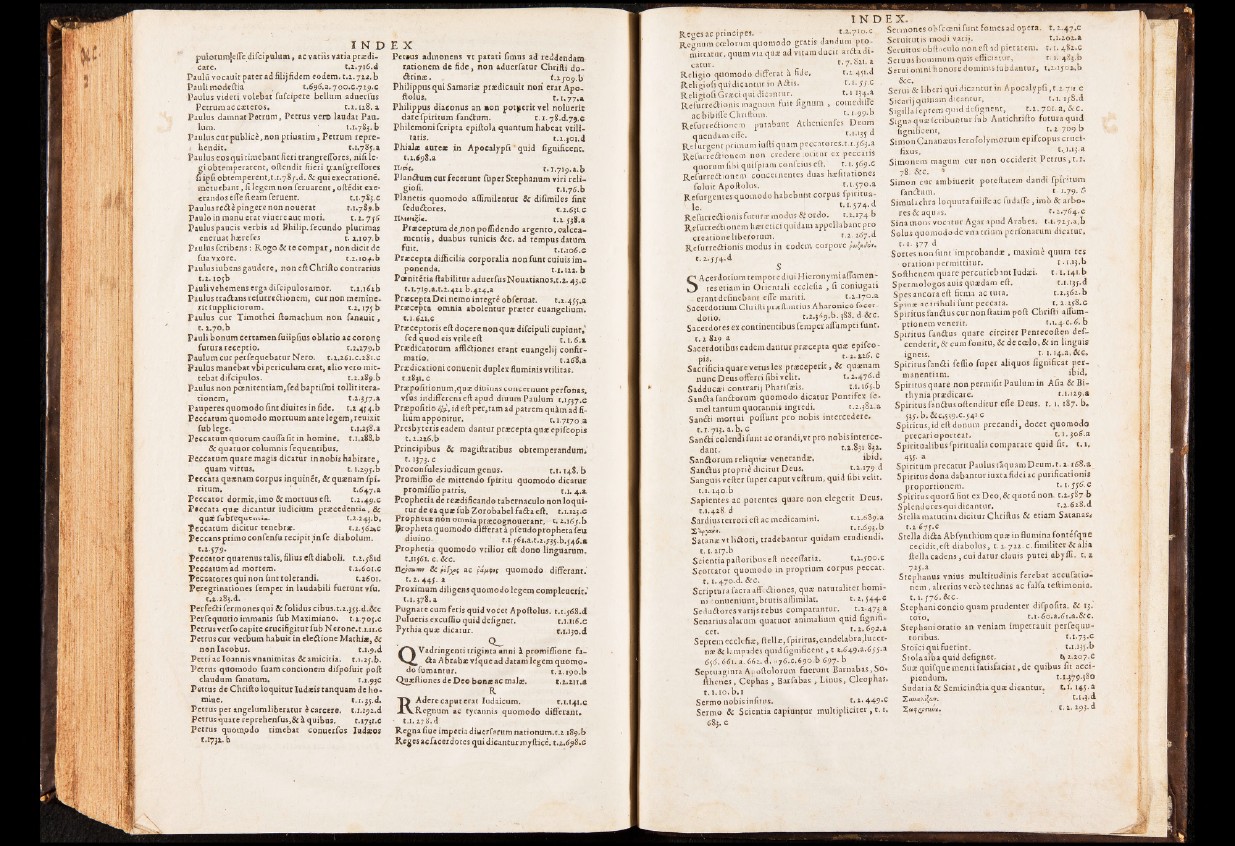 INDEX
pulorum esse discipulum, ac variis varia prædi-
care. t.2.716.d
Paulũ vocauit pater ad filij fidem eodem. t.2.722.b
Pauli modestia t.696.a.700.c.719.c
Paulus videri volebat suscipere bellum aduersus
Petrum ac cæteros. t.1.128.a
Paulus damnat Petrum, Petrus vero laudat Pau-
lum. t.1.783.b
Paulus cur publicè, non priuatim, Petrum repre-
hendit. t.1.785.a
Paulus eos qui timebant fieri transgressores, nisi le-
gi obtemperarent, ostendit fieri transgressores
si ipsi obtemperent, t.1.785.d. & qui execrationẽ.
metuebant, si legem non seruarent, ostẽdit exe-
crandos esse si eam seruent. t.1.783.c
Paulus rectè pingere non nouerat t.1.789.b
Paulo in manu erat viuere aut mori. t.2.756
Paulus paucis verbis ad Philip. secundo plurimas
eneruat hæreses t.2.107.b
Paulus scribens: Rogo & te compar, non dicit de
sua vxore. t.2.104.b
Paulus iubens gaudere, non est Christo contrarius
t.2.105b
Pauli vehemens erga discipulos amor. t.2.161b
Paulus tractans resurrectionem, cur non memine-
rit suppliciorum. t.2,175 b
Paulus cur Timothei stomachum non sanauit,
t.2.70.b
Pauli bonum certamen sui ipsius oblatio ac coronę
futura receptio. t.2.279.b
Paulum cur persequebatur Nero. t.2.261.c.281.c
Paulus manebat vbi periculum erat, alio vero mit-
tebat discipulos. t.2.289.b
Paulus non pœnitentiam, sed baptismi tollit itera-
tionem, t.2.557.a
Pauperes quomodo sint diuites in fide. t.2 454.b
Peccatum quomodo mortuum ante legem, reuixit
sub lege. t.1.258.a
Peccatum quorum caussa sit in homine. t.1.288.b
& quatuor columnis sequentibus.
Peccatum quare magis dicatur in nobis habitare,
quam virtus. t.1.295.b
Peccata quænam corpus inquinẽt, & quænam spi-
ritum, t.647.a
Peccator dormit, imo & mortuus est. t.2.49.c
Peccata quæ dicantur iudicium præcedentia, &
quæ subsequentia. t.2.243.b,
Peccatum dicitur tenebræ. t.2.562.c
Peccans primo consensu recipit in se diabolum.
t.2.579.
Peccator quatenus talis, filius est diaboli. t.2.581d
Peccatum ad mortem. t.2.601.c
Peccatores qui non sint tolerandi. t.2601.
Peregrinationes semper in laudabili fuerunt vsu.
t.2.283.d.
Perfecti sermones qui & solidus cibus. t.2.353.d.&c
Persequutio immanis sub Maximiano. t.2.705.c
Petrus verso capite crucifigitur sub Nerone. t.2.11.c
Petro cur verbum habuit in electione Mathiæ, &
non Iacobus. t.1.9.d
Petri ac Ioannis vnanimitas & amicitia. t.1.25.b.
Petrus quomodo suam concionem disposuit post
claudum sanatum. t.1.93c
Petrus de Christo loquitur Iudæis tanquam de ho-
mine. t.1.35.d.
Petrus per angelum liberatur è carcere. t.1.192.d
Petrus quare reprehensus, & à quibus. t.1751.c
Petrus quomodo timebat conuersos Iudæos
t.1732.b
Petrus admonens vt parati simus ad reddendam
rationem de fide, non aduersatur Christi do-
ctrinæ. t.2509.b
Philippus qui Samariæ prædicauit non erat Apo-
stolus. t.1.77.a
Philippus diaconus an non poterit vel noluerit
dare spiritum sanctum. t.1.78.d.79.c
Philemoni scripta epistola quantum habeat vtili-
tatis. t.2.301.d
Phialæ aureæ in Apocalypsi quid significent.
t.2.698.a
t.1.719.a.b
Planctum cur fecerunt super Stephanum viri reli-
giosi. t.1.76.b
Planetis quomodo assimilentur & dissimiles sint
seductores. t.2.631.c
t.2.538.a
Præceptum de non possidendo argento, calcea-
mentis, duabus tunicis &c. ad tempus datum
fuit. t.1.106.c
Præcepta difficilia corporalia non sunt cuiuis im-
ponenda. t.1.122.b
Pœnitẽtia stabilitur aduersus Nouatianos, t.2.45.c
t.1.719.a.t.2.421 b.424,a
Præcepta Dei nemo integrè obseruat. t.2.455.a
Præcepta omnia abolentur præter euangelium.
t.1.622.c
Præceptoris est docere non quæ discipuli cupiunt,
sed quod eis vtile est t.1.6.a
Prædicatorum afflictiones erant euangelij confir-
matio. t.268,a
Prædicationi conuenit duplex fluminis vtilitas.
t.2841.c
Præpositionum, quæ diuinas concernunt personas,
vsus indifferens est apud diuum Paulum t.1537.c
Præpositio διὰ, id est per, tam ad patrem quàm ad fi-
lium apponitur. t.1.7170 a
Presbyteris eadem dantur præcepta quæ episcopis
t.2.226.b
Principibus & magistratibus obtemperandum,
t.1373.c
Proconsules iudicum genus. t.1.148.b
Promissio de mittendo spiritu quomodo dicatur
promissio patris. t.1.4.a
Prophetia de reædificando tabernaculo non loqui-
tur de ea quæ sub Zorobabel facta est. t.1.123.c
Prophetæ nõn omnia præcognouerant. t.2.165.b
Propheta quomodo differat à pseudopropheta seu
diuino t.1.561.a.t.2.535.b.546.a
Prophetia quomodo vtilior est dono linguarum.
t.1561.c.&c.
quomodo differant.
t.2.445.a
Proximum diligens quomodo legem compleuerit.
t.1.378.a
Pugnare cum feris quid vocet Apostolus. t.1.568.d
Pulueris excussio quid designet. t.1.116.c
Pythia quæ dicatur. t.1.130.d
Q
QVadringenti triginta anni à promissione fa-
cta Abrahæ vsque ad datam legem quomo-
do sumantur. t.2.190.b
Quæstiones de Deo bonæ ac malæ. t.2.221.a
R
RAdere caput erat Iudaicum. t.1.141.c
Regnum ac tyrannis quomodo differant.
t.1.278.d
Regna siue imperia diuersarum nationum. t.2 189.b
Reges ac sacerdotes qui dicantur mysticè. t.2.698.c
INDEX.
Reges ac principes. t.2.710.c
Regnum cœlorum quomodo gratis dandum pro-
mittatur, quum via quæ ad vitam ducit arcta di-
catur. t.7.821.a
Religio quomodo differat à fide. t.2.451.d
Religiosi qui dicantur in Actis. t.1.55.c
Religiosi Græci qui dicantur. t.1 134.a
Resurrectionis magnum fuit signum, comedisse
ac bibisse Christum. t.1.99.b
Resurrectionem putabant Athenienses Deum
quendam esse. t.1.135 d
Resurgent primum iusti quam peccatores. t.1.563.a
Resurrectionem non credere oritur ex peccatis
quorum sibi quispiam conscius est. t.1.569.c
Resurrectionem concernentes duas hæsitationes
soluit Apostolus. t.1.570.a
Resurgentes quomodo habebunt corpus spiritua-
le. t.1.574.d
Resurrectionis futuræ modus & ordo. t.1.174.b
Resurrectionem hæretici quidam appellabant pro
creatione liberorum. t.2.267.d
Resurrectionis modus in eodem corpore
t.2.554.d
S
SAcerdotium tempore diui Hieronymi assumen-
tes etiam in Orientali ecclesia, si coniugati
erant desinebant esse mariti. t.2.170.a
Sacerdotium Christi præstantius Aharonico sacer-
dotio. t.2.369.b.388.d &c.
Sacerdotes ex continentibus semper assumpti sunt.
t.2 829 a
Sacerdotibus eadem dantur præcepta quæ episco-
pis. t.2.226.c
Sacrificia quare vetus lex præceperit, & quænam
nunc Deus offerri sibi velit. t.2.476.d
Sadducæi contrarij Pharisæis. t.1.165.b
Sancta sanctorum quomodo dicatur Pontifex se-
mel tantum quotannis ingredi. t.2.382.a
Sancti mortui possunt pro nobis intercedere.
t.1.713.a.b.c
Sancti colendi sunt ac orandi, vt pro nobis interce-
dant. t.2.831 832.
Sanctorum reliquiæ venerandæ. ibid.
Sanctus propriè dicitur Deus. t.2.179 d
Sanguis vester super caput vestrum, quid sibi velit.
t.1.140.b
Sapientes ac potentes quare non elegerit Deus.
t.1.428 d
Sardius terrori est ac medicamini. t.2.689.a
t.1.693.b
Satanæ vt lictori, tradebantur quidam erudiendi.
t.1.217.b
Scientia pastoribus est necessaria. t.2.500.c
Scortator quomodo in proprium corpus peccat.
t.1.470.d.&c.
Scriptura sacra affectiones, quæ naturaliter homi-
ni conueniunt, brutis assimilat. t.2.544.c
Seductores varijs rebus comparantur. t.2.473 a
Senarius alarum quatuor animalium quid signifi-
cet. t.2.692.a
Septem ecclesiæ, stellæ, spiritus, candelabra, lucer-
næ & lampades quid significent, t 2.649.a.655.a
656.661.a.662.d.696.c.690.b 697.b
Septuaginta Apostolorum fuerunt Barnabas, So-
sthenes, Cephas, Barsabas, Linus, Cleophas.
t.1.10.b.1
Sermo nobis insitus. t.2.449.c
Sermo & Scientia capiuntur multipliciter, t.1.
683.c
Sermones obscœni sunt fomes ad opera. t.2.47.c
Seruitutis modi varij. t.1.202.a
Seruitus obstaculo non est ad pietatem. t.1.482.c
Seruus hominum quis efficiatur, t.1.483.b
Serui omni honore dominis subdantur, t.2.1502.b
&c.
Serui & liberi qui dicantur in Apocalypsi, t.2 711 c
Sicarij quinam dicantur, t.1.158.d
Sigilla septem quid designent, t.2.701.a, &c.
Signa quæ scribuntur sub Antichristo futura quid
significent, t.2 709 b
Simon Cananæus Ierosolymorum episcopus cruci-
fixus, t.1.15.a
Simonem magum cur non occiderit Petrus, t.1.
78.&c.
Simon cur ambiuerit potestatem dandi spiritum
sanctum. t 1.79.c
Simulachra loquuta fuisse ac sudasse, imò & arbo-
res & aquas. t.2.764.c
Sina mons vocatur Agar apud Arabes. t.1.725.a.b
Solus quomodo de vna trium personarum dicatur,
t.1.377 d
Sortes non sunt improbandæ, maximè quum res
orationi permittitur. t.1.13.b
Sosthenem quare percutiebant Iudæi. t.1.141.b
Spermologos auis quædam est. t.1.135.d
Spes ancora est firma ac tuta. t.2.362.b
Spinæ ac tribuli sunt peccata. t.2.358.c
Spiritus sanctus cur non statim post Christi assum-
ptionem venerit. t.1.4.c.6.b
Spiritus sanctus quare circiter Pentecosten des-
cenderit, & cum sonitu, & de cœlo, & in linguis
igneis. t.1.14.a.&c.
Spiritus sancti sessio super aliquos significat per-
manentiam. ibid.
Spiritus quare non permisit Paulum in Asia & Bi-
thynia prædicare. t.1.129.a
Spiritus sanctus ostenditur esse Deus. t.1.187.b.
535.b.&c.539.c.541 c
Spiritus, id est donum precandi, docet quomodo
precari oporteat. t.1.306.a
Spiritualibus spiritualia comparare quid sit. t.1.
435.a
Spiritum precatur Paulus tãquam Deum. t.2 168.a
Spiritus dona dabantur iuxta fidei ac purificationis
proportionem. t.1.556.c
Spiritus quorũ sint ex Deo, & quorũ non. t.2.587 b
Splendores qui dicantur. t.2.628.d
Stella matutina dicitur Christus & etiam Satanas,
t.2 675.c
Stella dicta Absynthium quæ in flumina fontésque
cecidit, est diabolus, t.2.722.c. similiter & alia
stella cadens, cui datur clauis putei abyssi. t.2
725.a
Stephanus vnius multitudinis ferebat accusatio-
nem, alterius verò technas ac falsa testimonia.
t.1.576.&c.
Stephani concio quam prudenter disposita. & 13.
toto, t.1.60.a.61.a.&c.
Stephani oratio an veniam impetrauit persequu-
toribus. t.1.73.c
Stoici qui fuerint. t.1.135.b
Stola alba quid designet. t.2.207.c
Suæ quisque menti satisfaciat, de quibus sit acci-
piendum. t.1.379.380
Sudaria & Semicinctia quæ dicantur, t.1.145.a
t.1.3.d
t.2.293.d